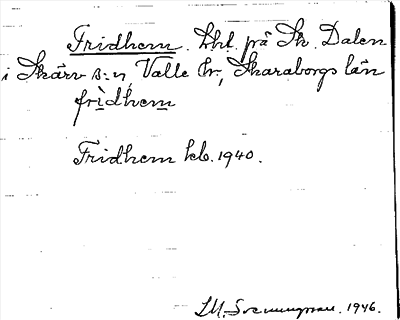 Fridhem. lht. på Sk. Dalen
i Skärv s:n, Valle hr, Skaraborgs län
fri̊dhem
Fridhem kb. 1940.
1946.